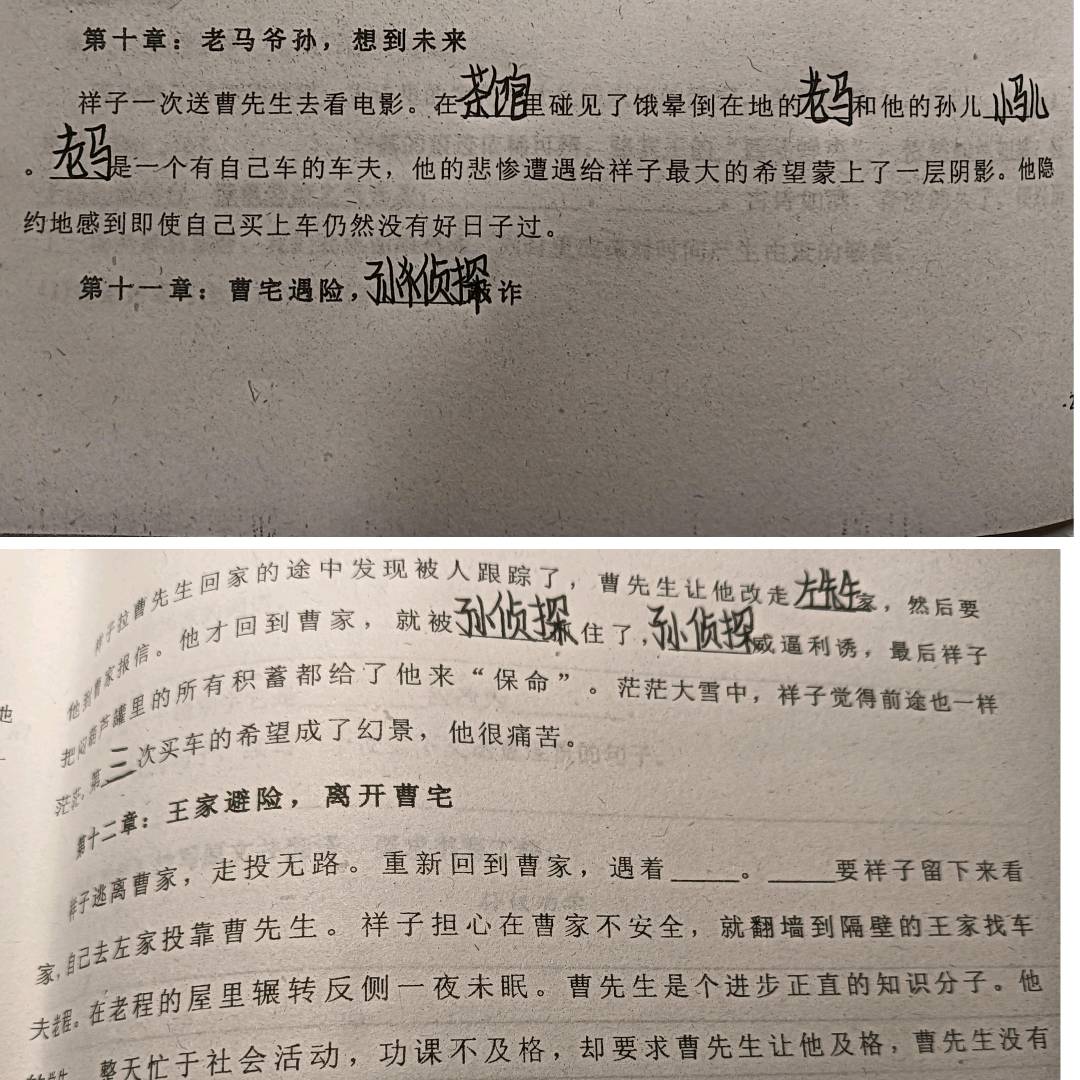 第十章：老马爷孙，想到未来
祥子一次送曹先生去看电影。在茶馆里碰见了饿晕倒在地的老马和他的孙儿小马儿
。老马是一个有自己车的车夫，他的悲惨遭遇给祥子最大的希望蒙上了一层阴影。他隐
约地感到即使自己买上车仍然没有好日子过。
第十一章：曹宅遇险，孙侦探敲诈
祥子拉曹先生回家的途中发现被人跟踪了，曹先生让他改走左先生家，然后要
他到曹家报信。他才回到曹家，就被孙侦探抓住了，孙侦探威逼利诱，最后祥子
把闷葫芦罐里的所有积蓄都给了他来“保命”。茫茫大雪中，祥子觉得前途也一样
茫茫，第二次买车的希望成了幻景，他很痛苦。
第十二章：王家避险，离开曹宅
祥子逃离曹家，走投无路。重新回到曹家，遇着_____。_____要祥子留下来看
家，自己去左家投靠曹先生。祥子担心在曹家不安全，就翻墙到隔壁的王家找车
夫老程。在老程的屋里辗转反侧一夜未眠。曹先生是个进步正直的知识分子。他
整天忙于社会活动，功课不及格，却要求曹先生让他及格，曹先生没有